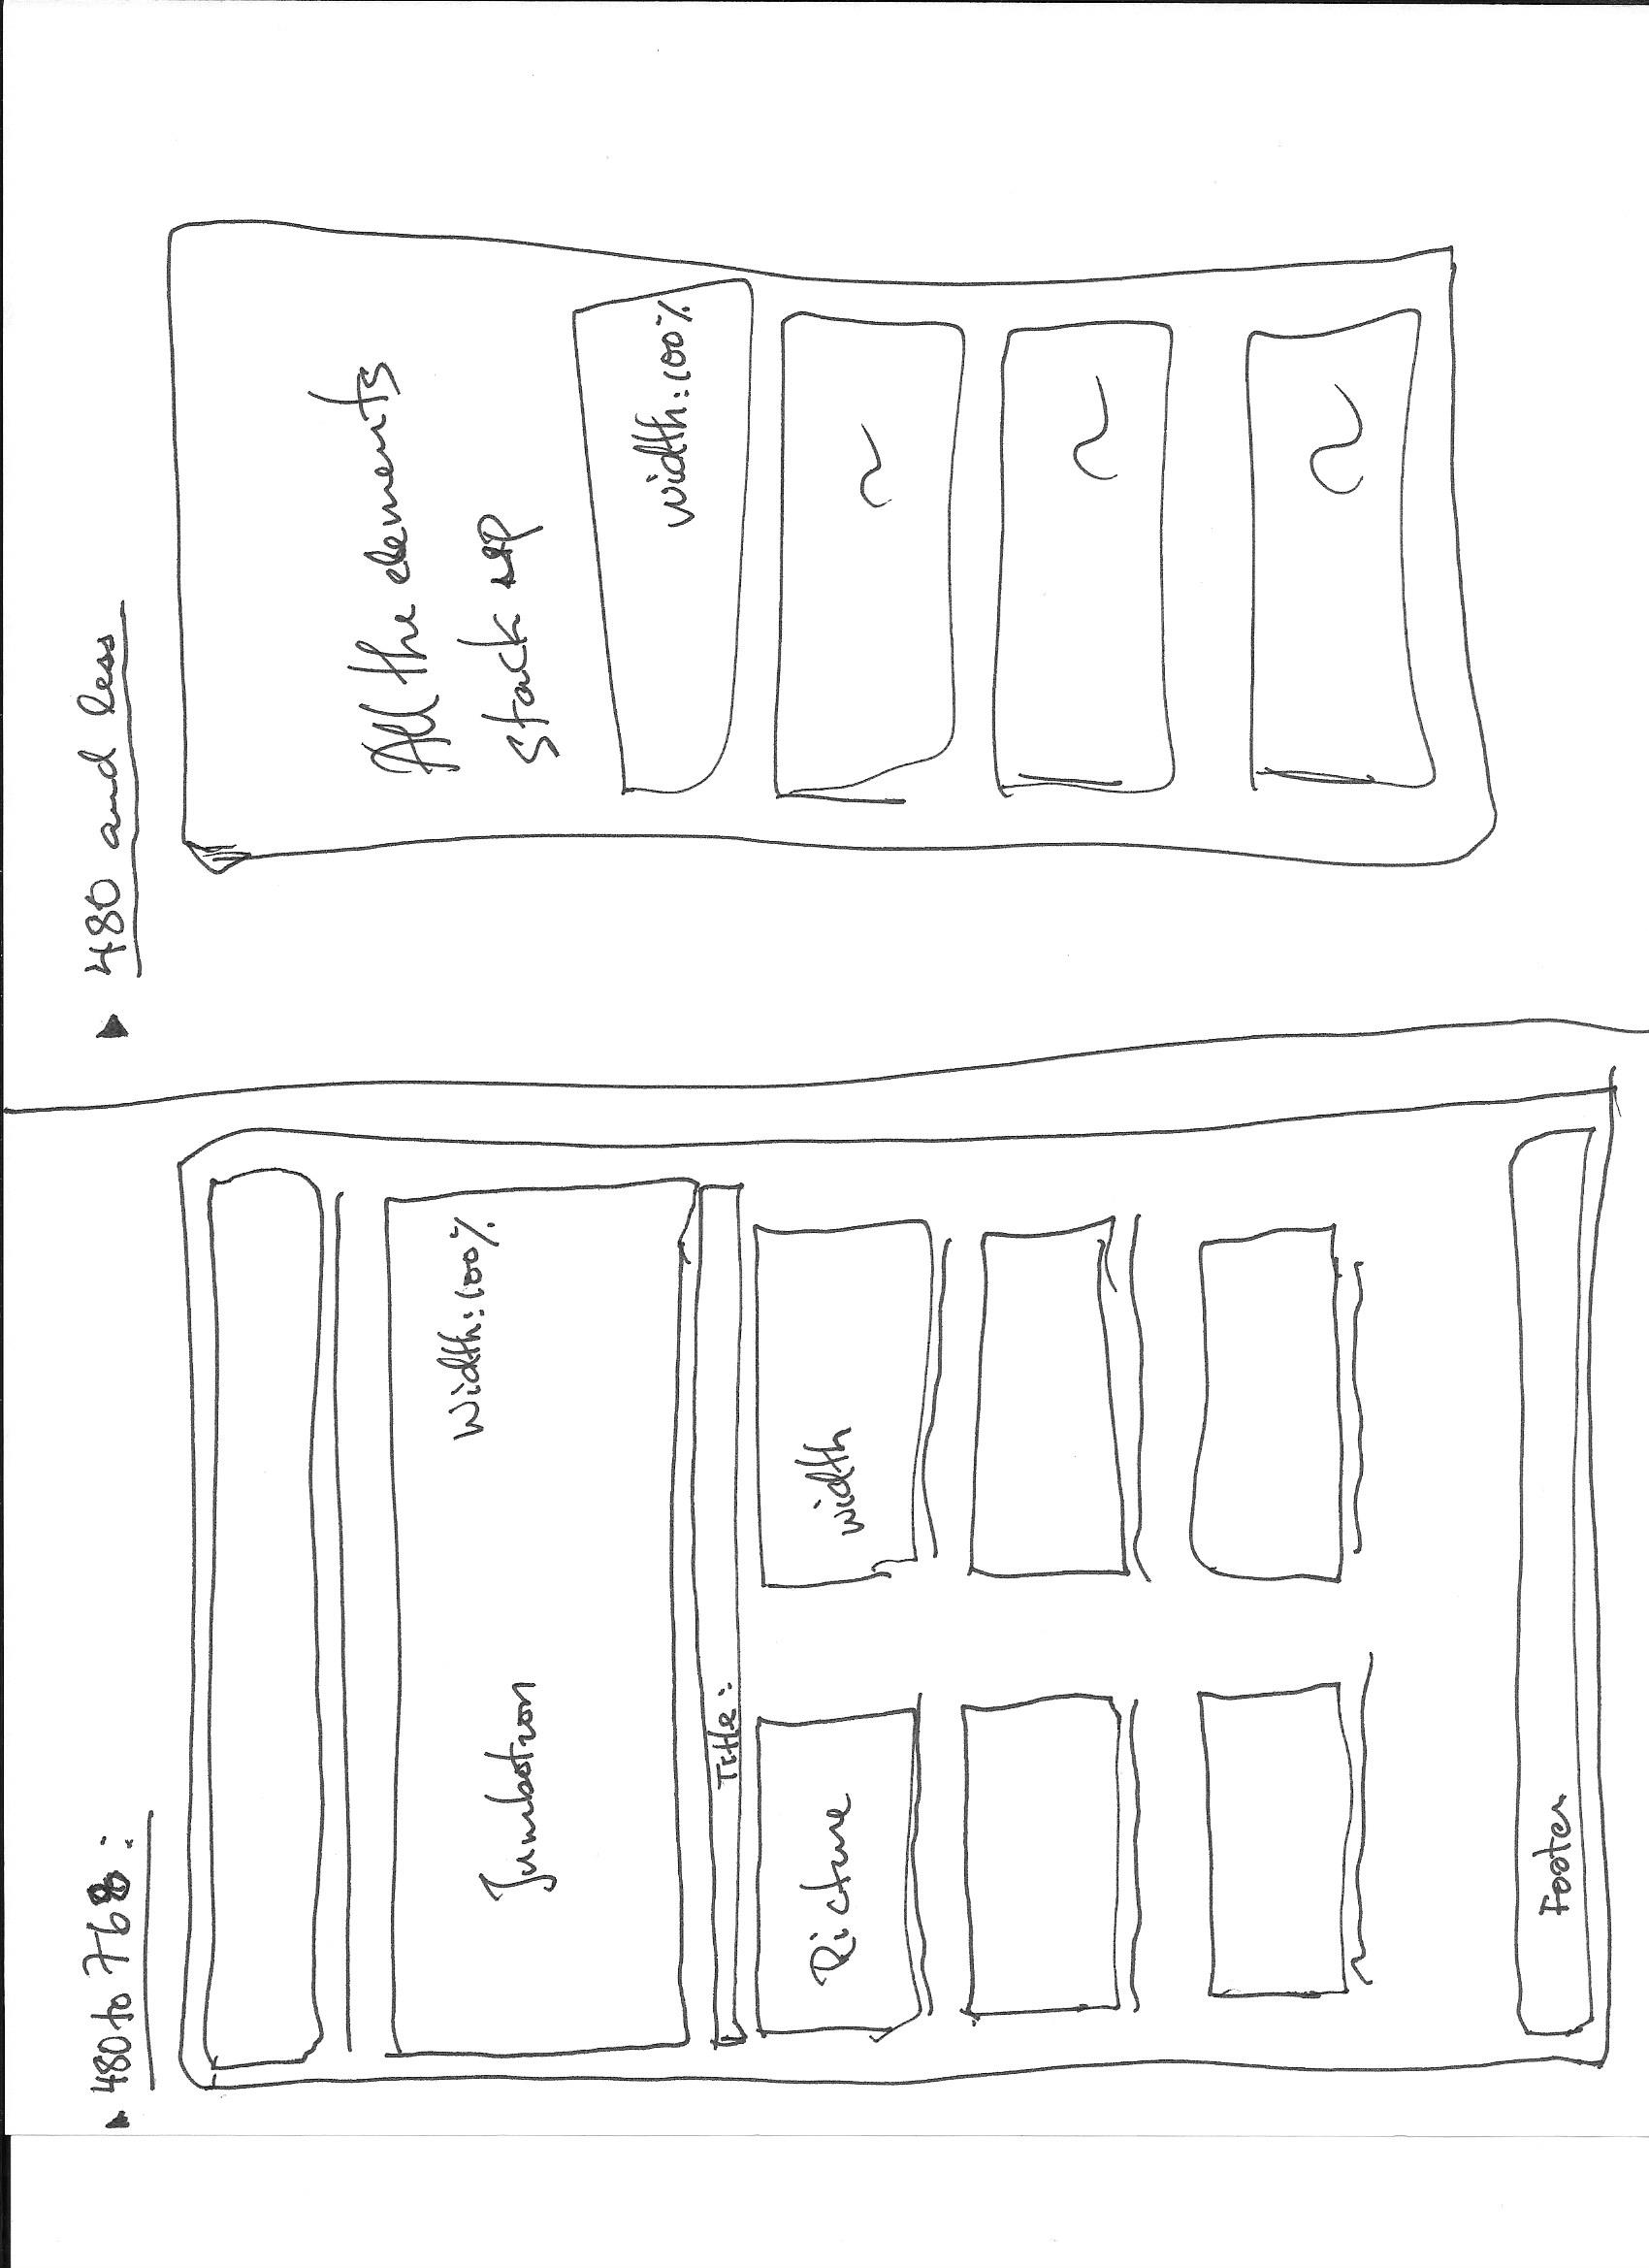 480 to 768:
Jumbotron
Width: 100%
Title:
Picture
width
Footer
480 and less
All the elements
stack up
width: 100%
~
~
~